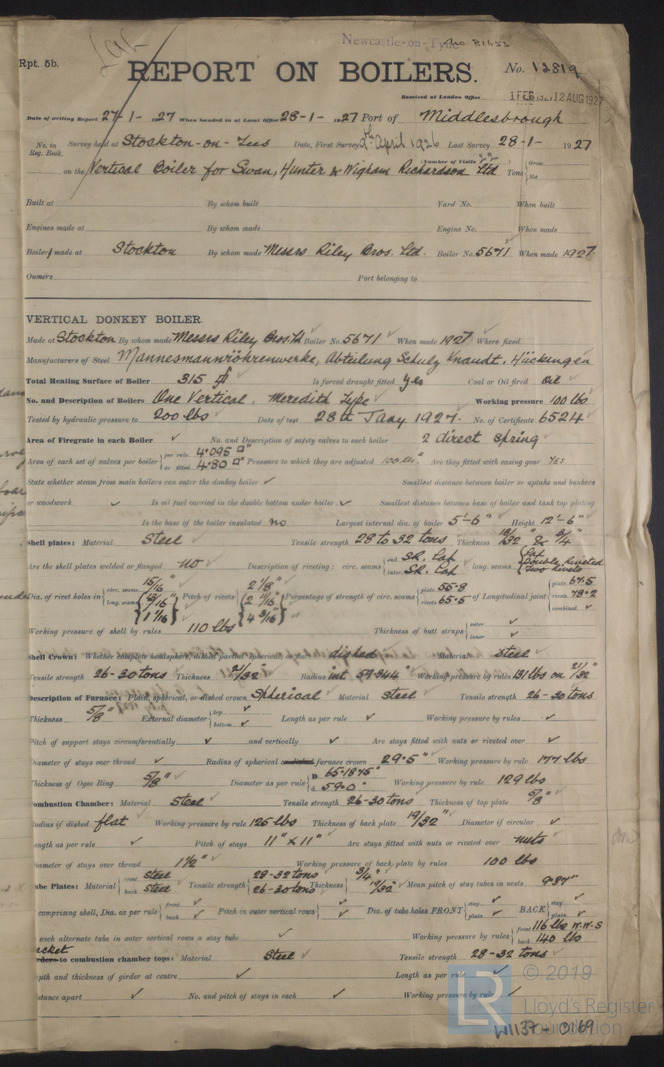 Newcastle-on-Tyne No 81633
Rpt. 5b.
REPORT ON BOILERS.
No. 12819
Received at London Office 12 AUG 1927
Date of writing Report 27-1-1927 When handed in at Local Office 28-1-1927 Port of Middlesbrough
No. in Reg. Book. Survey held at Stockton-on-Tees Date, First Survey 2nd April 1926 Last Survey 28-1-1927
on the Vertical Boiler for Swan, Hunter & Wigham Richardson Ltd (Number of Visits Tons Gross Net
Built at By whom built Yard No. When built
Engines made at By whom made Engine No. When made
Boiler made at Stockton By whom made Messrs Riley Bros. Ltd. Boiler No. 5671 When made 1927
Owners Port belonging to
VERTICAL DONKEY BOILER
Made at Stockton By whom made Messrs Riley Bros. Ltd Boiler No. 5671 When made 1927 Where fixed
Manufacturers of Steel Mannesmannröhrenwerke, Abteilung Schulz Knaudt, Hückingen
Total Heating Surface of Boiler 315 Is forced draught fitted Yes Coal or Oil fired Oil
No. and Description of Boilers One Vertical. Meredith Type Working pressure 100 lbs
Tested by hydraulic pressure to 200 lbs Date of test 28th Jany 1927. No. of Certificate 6524
Area of Firegrate in each Boiler ✓ No. and Description of safety valves to each boiler 2 direct spring
Area of each set of valves per boiler per rule 4.095 □" as fitted 4.80 □" Pressure to which they are adjusted 100 lbs Are they fitted with easing gear YES
State whether steam from main boilers can enter the donkey boiler ✓ Smallest distance between boiler or uptake and bunkers
or woodwork ✓ Is oil fuel carried in the double bottom under boiler ✓ Smallest distance between base of boiler and tank top plating
Is the base of the boiler insulated no Largest internal dia. of boiler 5'-6" Height 12'-6"
Shell plates: Material Steel Tensile strength 28 to 32 tons Thickness 19/32" & 3/4"
Are the shell plates welded or flanged no Description of riveting: circ. seams end SR. Lap inter. SR. Lap long. seams Lap Double Riveted
Dia. of rivet holes in circ. seams 15/16" long. seams 15/16" 1 1/16" Pitch of rivets 2 1/8" 2 11/16" 4 3/16" Percentage of strength of circ. seams plate 55.8 rivets 65.5 of Longitudinal joint plate 67.5 rivets 78.2 combined ✓
Working pressure of shell by rules 110 lbs Thickness of butt straps outer ✓ inner ✓
Shell Crown: Whether complete hemisphere, dished partial dished Material Steel
Tensile strength 26-30 tons Thickness 21/32" Radius int 59.344" Working pressure by rules 131 lbs on 21/32"
Description of Furnace: Plain, spherical, or dished crown Spherical Material Steel Tensile strength 26-30 tons
Thickness 5/8" External diameter top ✓ bottom ✓ Length as per rule ✓ Working pressure by rules ✓
Pitch of support stays circumferentially ✓ and vertically ✓ Are stays fitted with nuts or riveted over ✓
Diameter of stays over thread ✓ Radius of spherical furnace crown 29.5" Working pressure by rule 177 lbs
Thickness of Ogee Ring 5/8" Diameter as per rule D 65.1875" d 59.0" Working pressure by rule 129 lbs
Combustion Chamber: Material Steel Tensile strength 26-30 tons Thickness of top plate 5/8"
Radius if dished flat Working pressure by rule 125 lbs Thickness of back plate 19/32" Diameter if circular ✓
Length as per rule ✓ Pitch of stays 11" x 11" Are stays fitted with nuts or riveted over nuts
Diameter of stays over thread 1 1/2" Working pressure of back plate by rules 100 lbs
Tube Plates: Material front Steel back Steel Tensile strength 28-32 tons 26-30 tons Thickness 3/4" 19/32" Mean pitch of stay tubes in nests 9.37"
comprising shell, Dia. as per rule front ✓ back ✓ Pitch in outer vertical rows ✓ Dia. of tube holes FRONT stay ✓ plain ✓ BACK stay ✓ plain ✓
each alternate tube in outer vertical rows a stay tube ✓ Working pressure by rules front 116 lbs W.W.S back 140 lbs
to combustion chamber tops: Material Steel Tensile strength 28-32 tons
Depth and thickness of girder at centre ✓ Length as per rule ✓
Distance apart ✓ No. and pitch of stays in each ✓ Working pressure by rule ✓
LR © 2019
Lloyd's Register
Foundation
W1137-0169